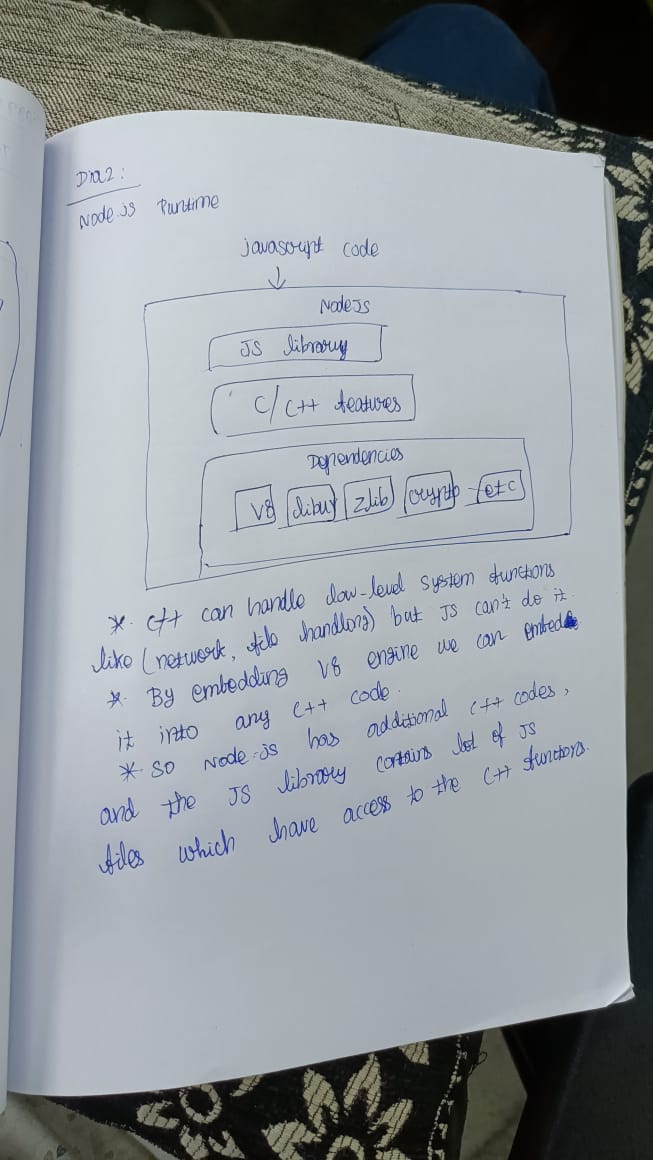 Dia2:
Node.js Runtime
javascript code
NodeJS
JS library
C/C++ features
Dependencies
V8 libuv zlib crypto etc
* C++ can handle low-level system functions
like (network, file handling) but JS can't do it.
* By embedding V8 engine we can embed
it into any C++ code.
* So Node.js has additional C++ codes,
and the JS library contains lot of JS
files which have access to the C++ functions.